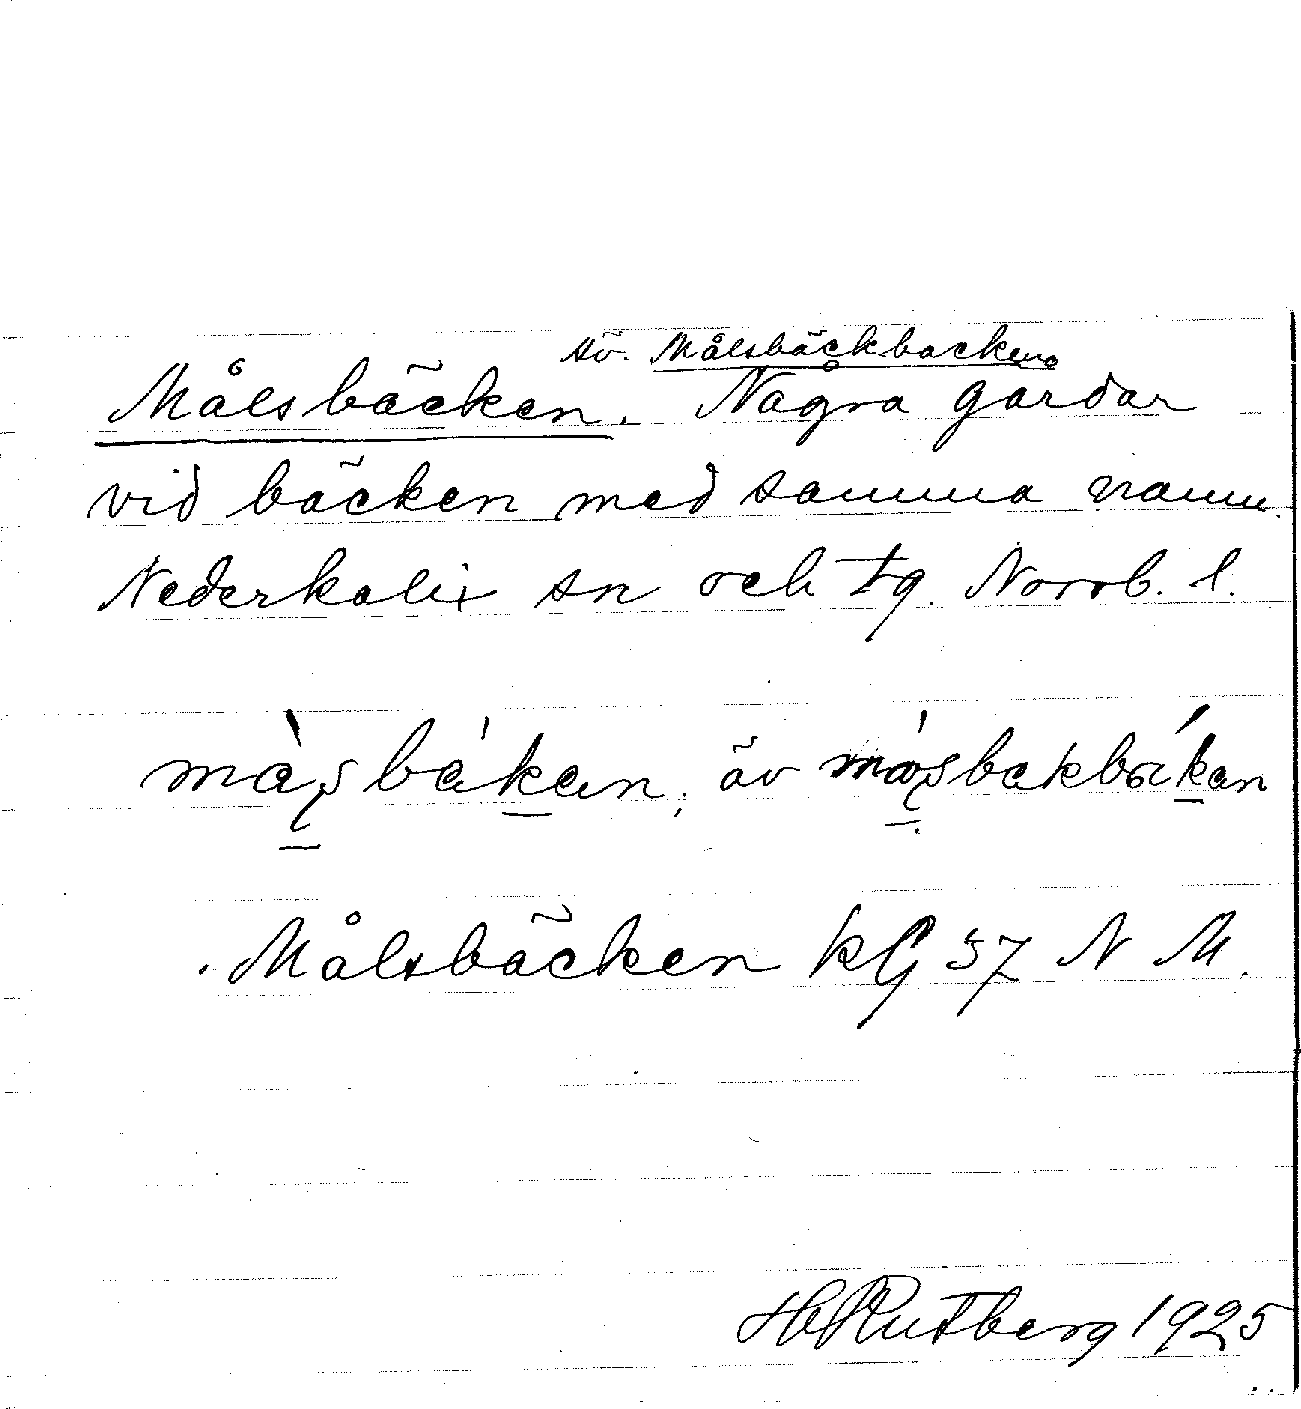 äv. Målsbäckbacken
Målsbäcken. Några gårdar
vid bäcken med samma namn.
Nederkalix sn och tg. Norrb. l.
äv
Målsbäcken kG 57 N M.
H Rutberg 1925